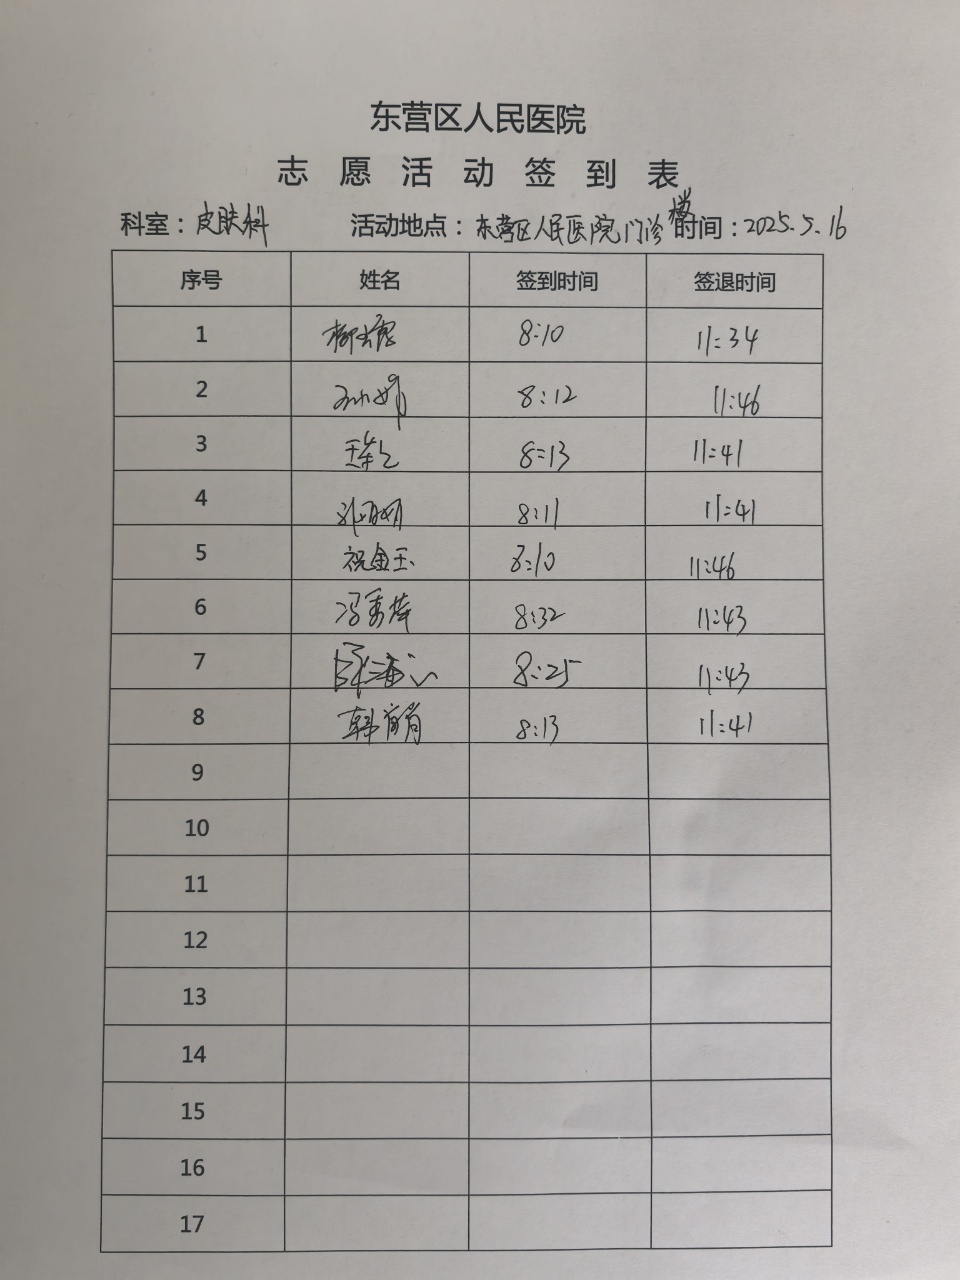 东营区人民医院
志愿活动签到表
科室：皮肤科 活动地点：东营区人民医院门诊楼 时间：2025.5.16
序号 姓名 签到时间 签退时间
1 8:10 11:34
2 孙娟 8:12 11:46
3 8:13 11:41
4 8:11 11:41
5 祝金玉 8:10 11:46
6 冯秀萍 8:32 11:43
7 8:25 11:43
8 韩 8:13 11:41
9
10
11
12
13
14
15
16
17